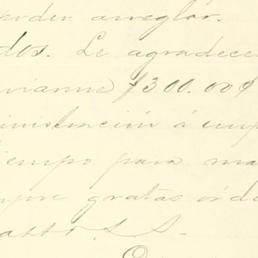 poder arreglar.
dos. Le agradecer
viarme $300.00
ministración á imp
tiempo para ma
mpre gratas órde
atto S. S.